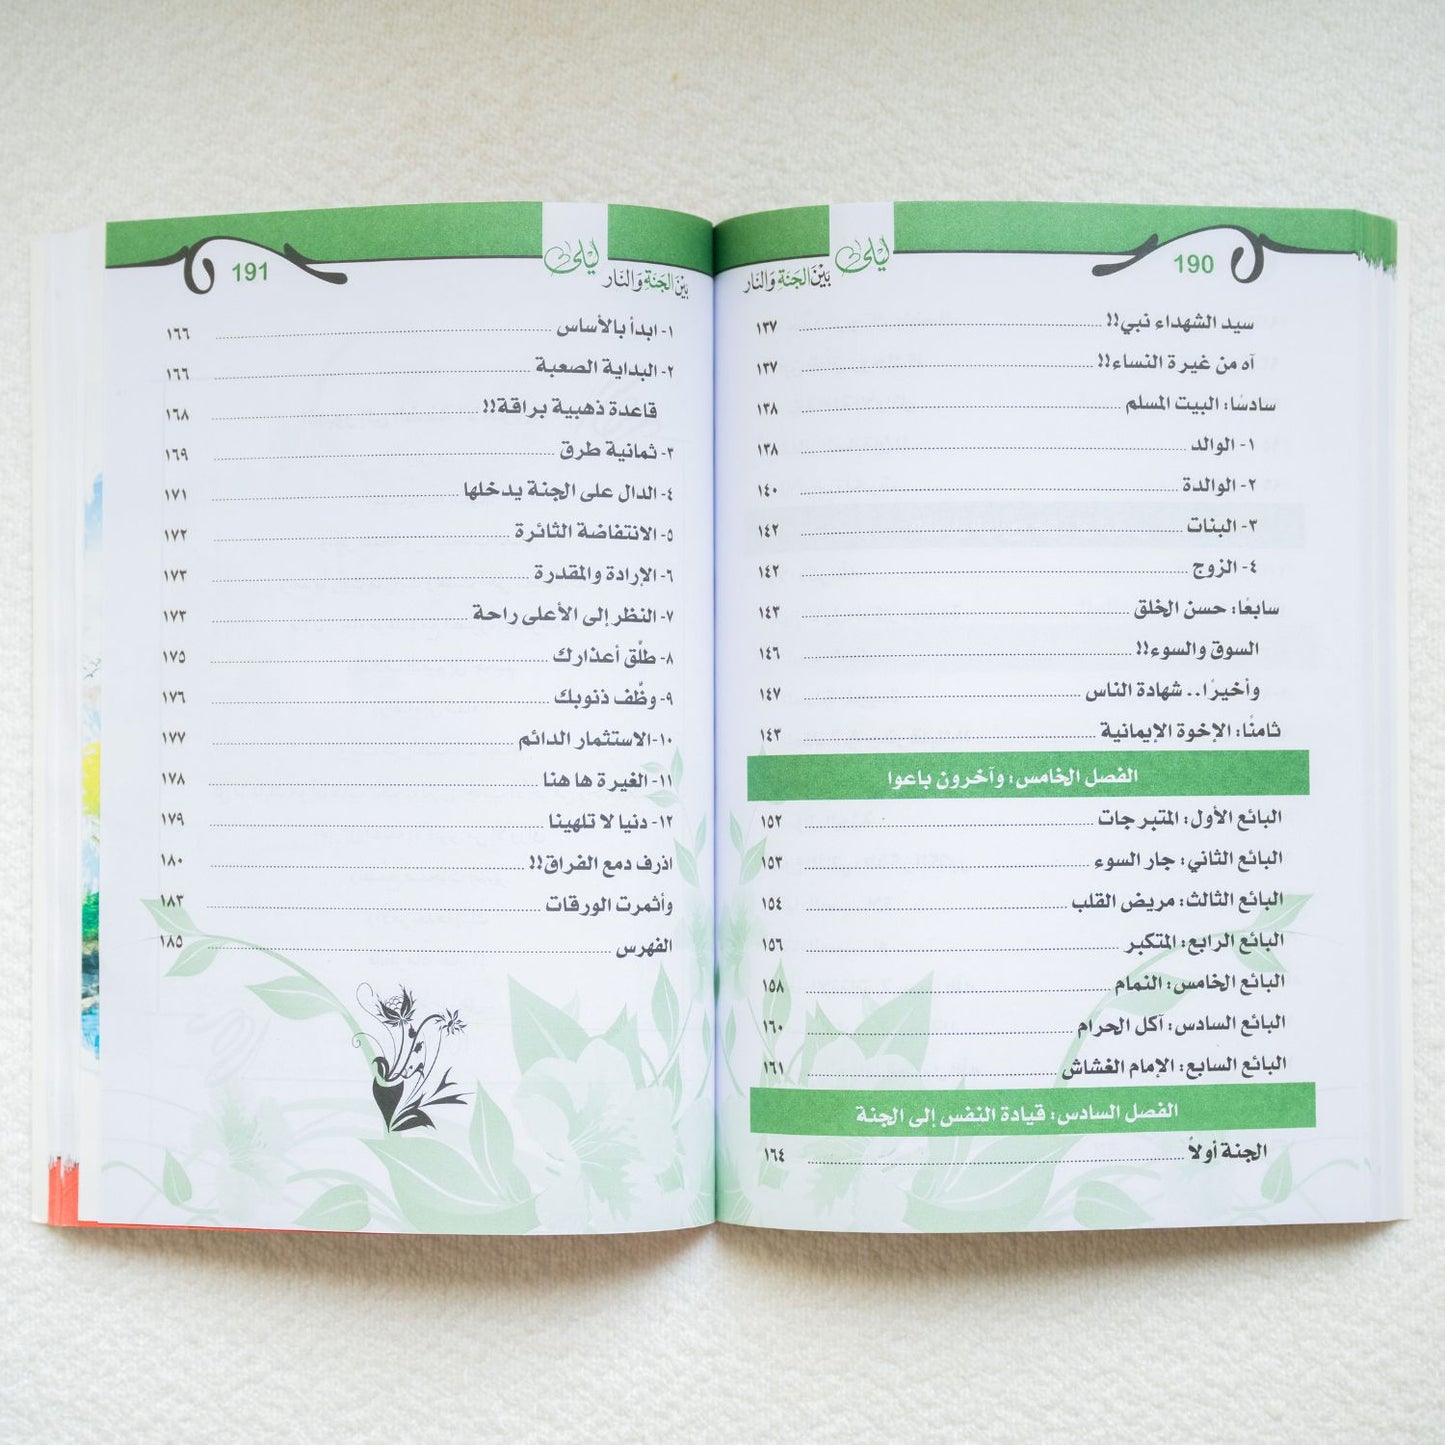 190
ليلى
بين الجنة والنار
سيد الشهداء نبي!! ١٣٧
آه من غيرة النساء!! ١٣٧
سادسًا: البيت المسلم ١٣٨
١- الوالد ١٣٨
٢- الوالدة ١٤٠
٣- البنات ١٤٢
٤- الزوج ١٤٢
سابعًا: حسن الخلق ١٤٣
السوق والسوء!! ١٤٦
وأخيرًا.. شهادة الناس ١٤٧
ثامنًا: الإخوة الإيمانية ١٤٣
الفصل الخامس: وآخرون باعوا
البائع الأول: المتبرجات ١٥٢
البائع الثاني: جار السوء ١٥٣
البائع الثالث: مريض القلب ١٥٤
البائع الرابع: المتكبر ١٥٦
البائع الخامس: النمام ١٥٨
البائع السادس: آكل الحرام ١٦٠
البائع السابع: الإمام الغشاش ١٦١
الفصل السادس: قيادة النفس إلى الجنة
الجنة أولاً ١٦٤
191
ليلى
بين الجنة والنار
١- ابدأ بالأساس ١٦٦
٢- البداية الصعبة ١٦٦
قاعدة ذهبية براقة!! ١٦٨
٣- ثمانية طرق ١٦٩
٤- الدال على الجنة يدخلها ١٧١
٥- الانتفاضة الثائرة ١٧٢
٦- الإرادة والمقدرة ١٧٣
٧- النظر إلى الأعلى راحة ١٧٣
٨- طلِّق أعذارك ١٧٥
٩- وظِّف ذنوبك ١٧٦
١٠- الاستثمار الدائم ١٧٧
١١- الغيرة ها هنا ١٧٨
١٢- دنيا لا تلهينا ١٧٩
اذرف دمع الفراق!! ١٨٠
وأثمرت الورقات ١٨٣
الفهرس ١٨٥